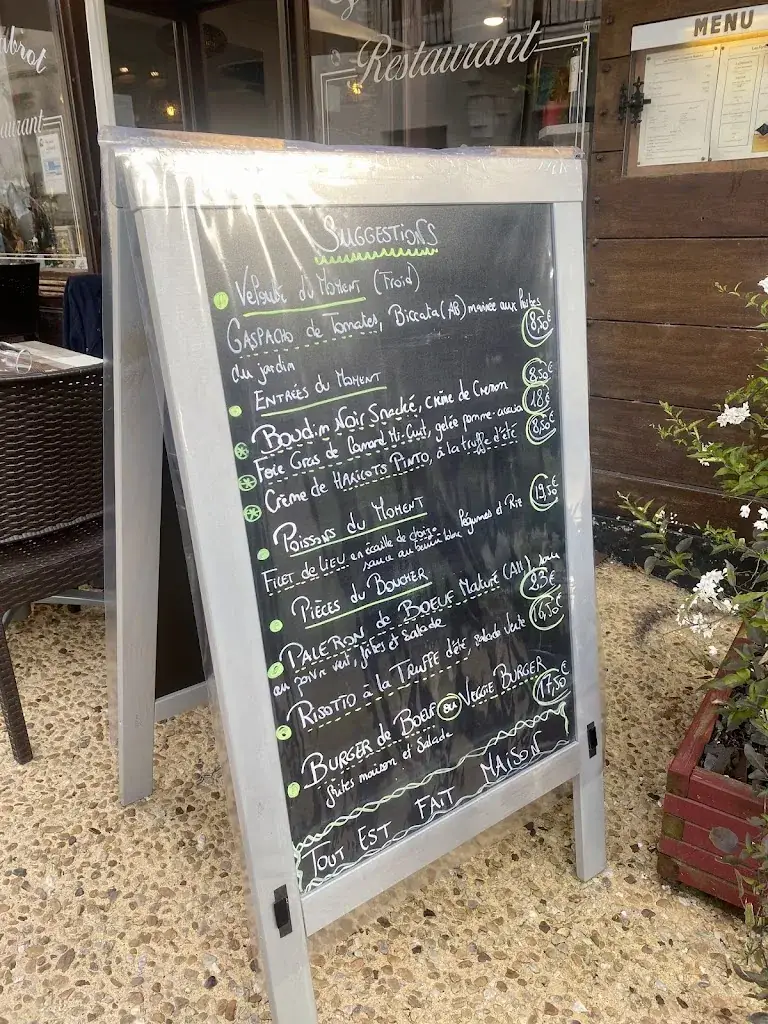 abrot
aurant
Restaurant
MENU
SUGGESTIONS
Velouté du MOMENT (Froid)
GASPACHO de Tomates, Biccata (AB) marinée aux
8,50€
du jardin
ENTRÉES du MOMENT
BOUDIN NOIR SNACKÉ, crème de Cresson 8,50€
Foie Gras de Canard Mi-Cuit, gelée pomme-acacia 18€
Crème de HARICOTS PINTO, à la truffe d'été 8,50€
POISSONS du MOMENT
FILET de LIEU en écaille de chorizo légumes et Riz 19,50€
sauce au beurre blanc
PIÈCES du BOUCHER
PALERON de BOEUF Maturé (All) 23€
au poivre vert, frites et salade
RISOTTO à la TRUFFE d'été, salade verte
BURGER de BOEUF ou VEGGIE BURGER 17,50€
frites maison et Salade
TOUT EST FAIT MAISON